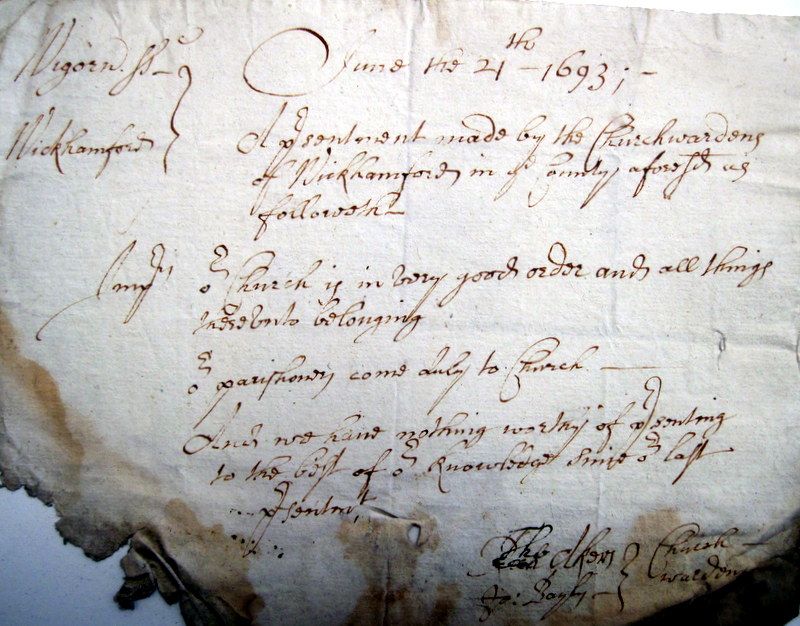 Wigorn. ss
June the 21th - 1693; -
Wickhamford
A p'sentment made by the Churchwardens
of Wickhamford in ye County aforesd as
followeth
Imprs or Church is in very good order and all things
therevnto belonging
or parishoners come duly to Church
And we have nothing worthy of p'senting
to the best of or knowledge since or last
p'sentmt
Tho Church
Wardens